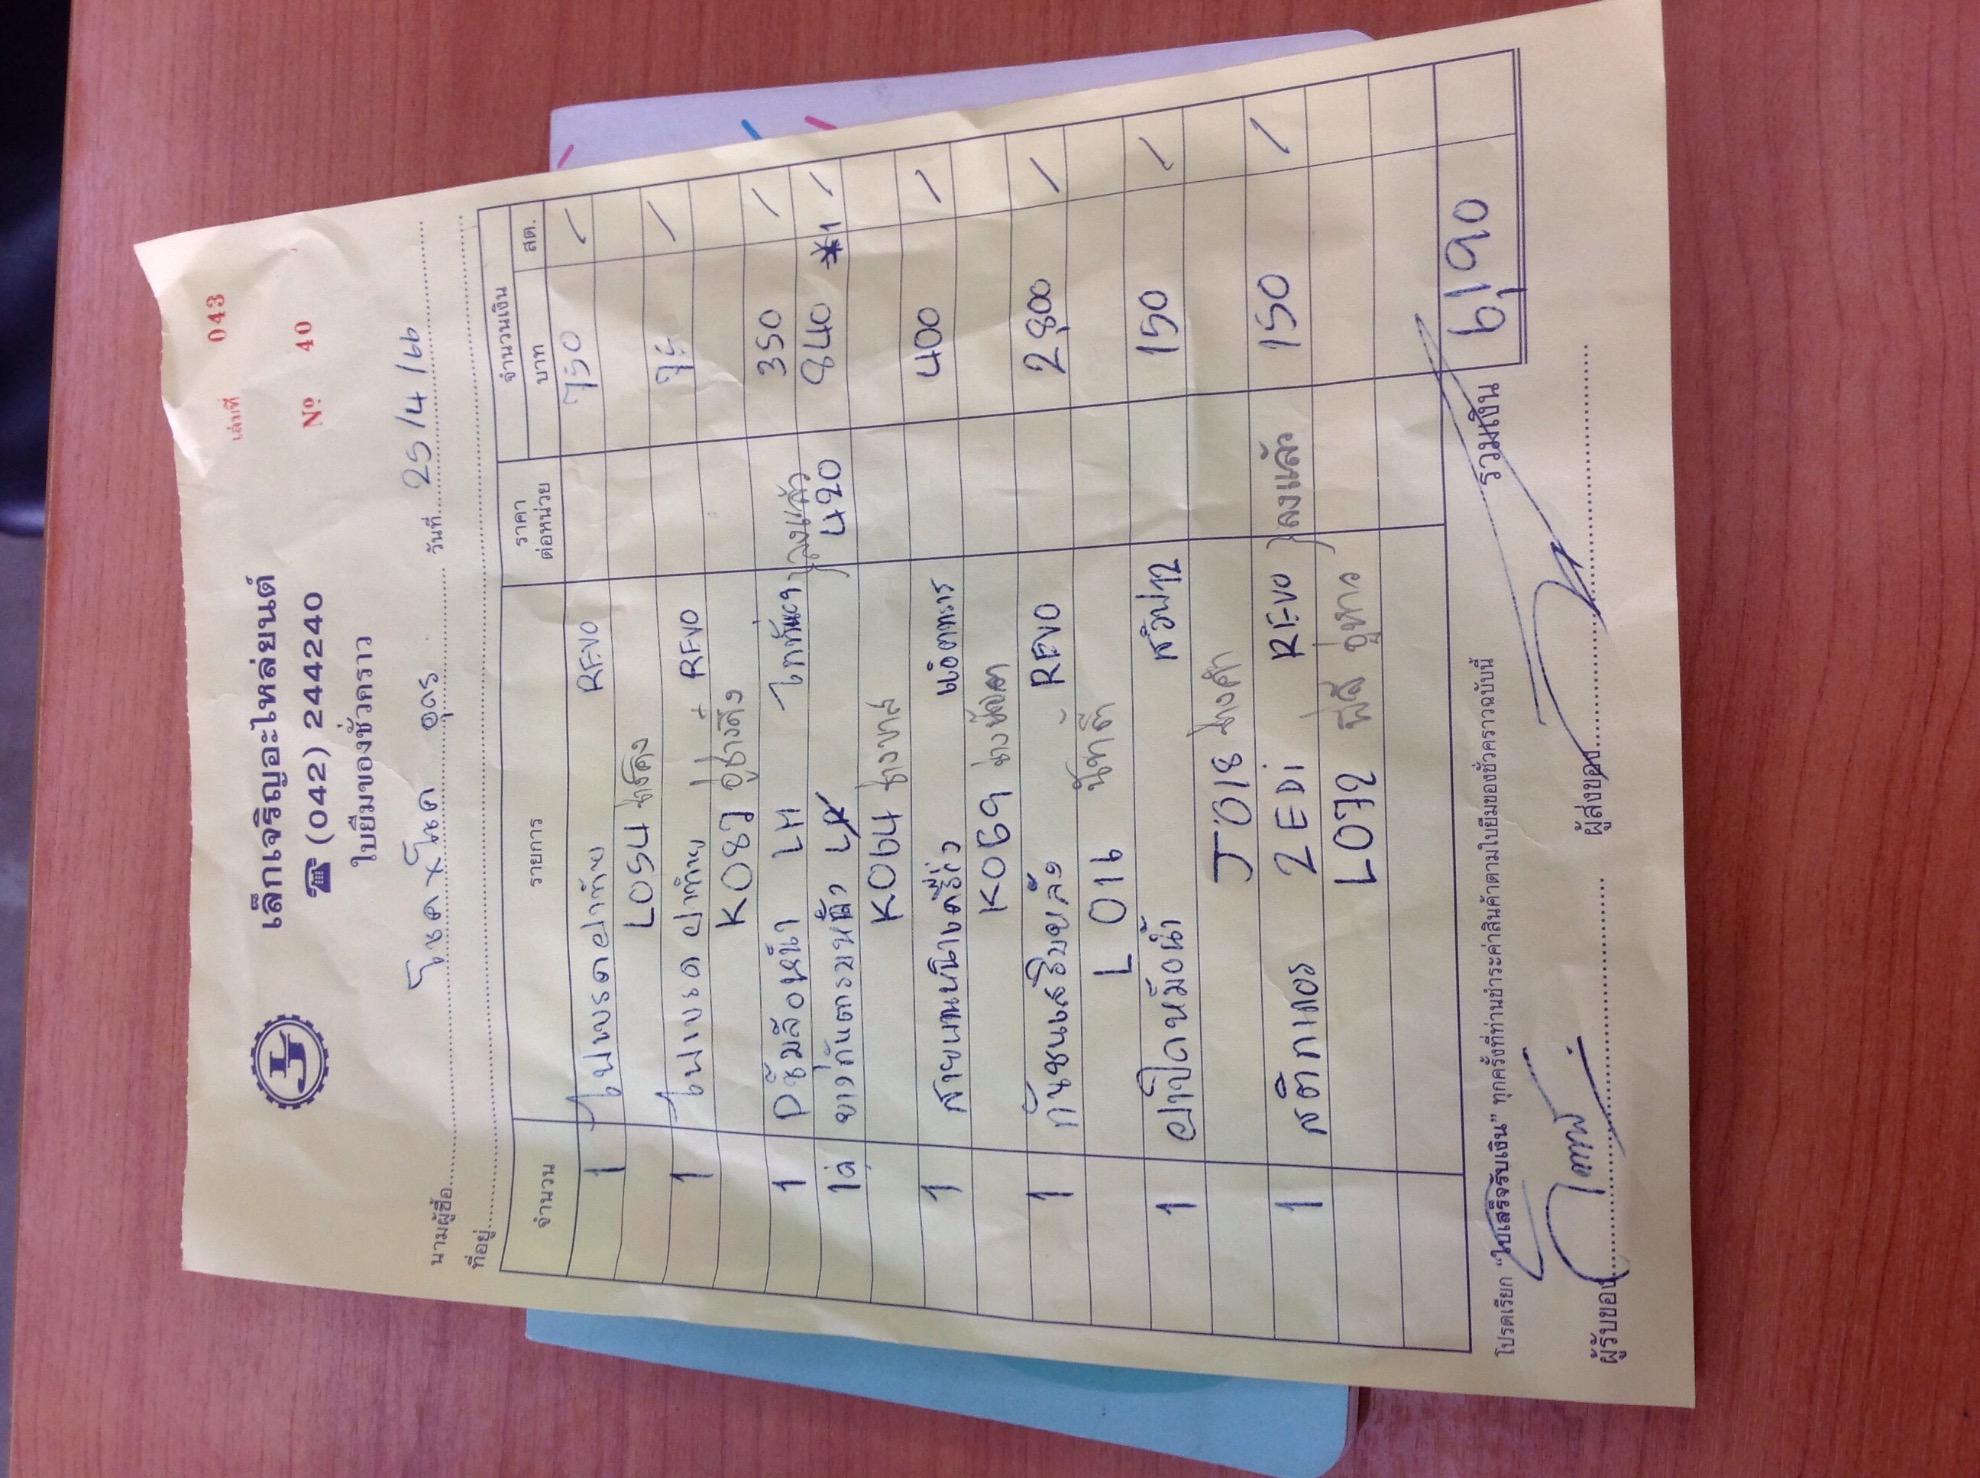 เล่มที่ 043
เล็กเจริญอะไหล่ยนต์
☎ (042) 244240
No 40
ใบยืมของชั่วคราว
นามผู้ซื้อ โชค x โชค อุดร วันที่ 25/4/66
ที่อยู่
จำนวน รายการ ราคาต่อหน่วย จำนวนเงิน
บาท สต.
1 ไฟเบรคฝาท้าย REVO 750 /
L054
1 ไฟเบรคฝาท้าย REVO /
K087 อู่ช่างติ่ง
1 ปะซุ้มล้อหน้า LH 350 /
1 ลงแล้ว 420 840 *1 /
K064
1 400 /
K069
1 กันชนเสริมหลัง REVO 2,800 /
L 016
1 ฝาปิดหม้อน้ำ 150 /
J018 ช่างคำ
1 สติกเกอร์ 2EDi REVO ลงแล้ว 150 /
L072
โปรดเรียก “ใบเสร็จรับเงิน” ทุกครั้งที่ท่านชำระค่าสินค้าตามใบยืมของชั่วคราวฉบับนี้ รวมเงิน 6,190
ผู้รับของ ผู้ส่งของ